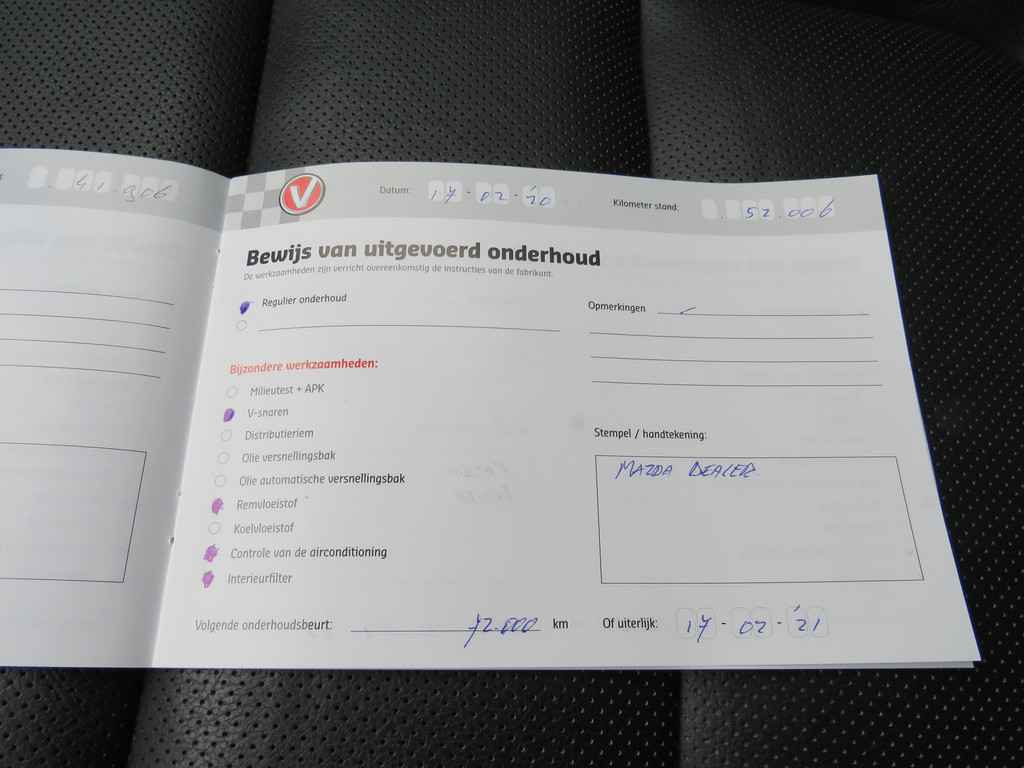 41.906
V
Datum: 17-02-'20
Kilometer stand: 52.006
Bewijs van uitgevoerd onderhoud
De werkzaamheden zijn verricht overeenkomstig de instructies van de fabrikant.
Regulier onderhoud
Opmerkingen
Bijzondere werkzaamheden:
Milieutest + APK
V-snaren
Distributieriem
Olie versnellingsbak
Olie automatische versnellingsbak
Remvloeistof
Koelvloeistof
Controle van de airconditioning
Interieurfilter
Stempel / handtekening:
MAZDA DEALER
Volgende onderhoudsbeurt: 72.000 km
Of uiterlijk: 17-02-'21